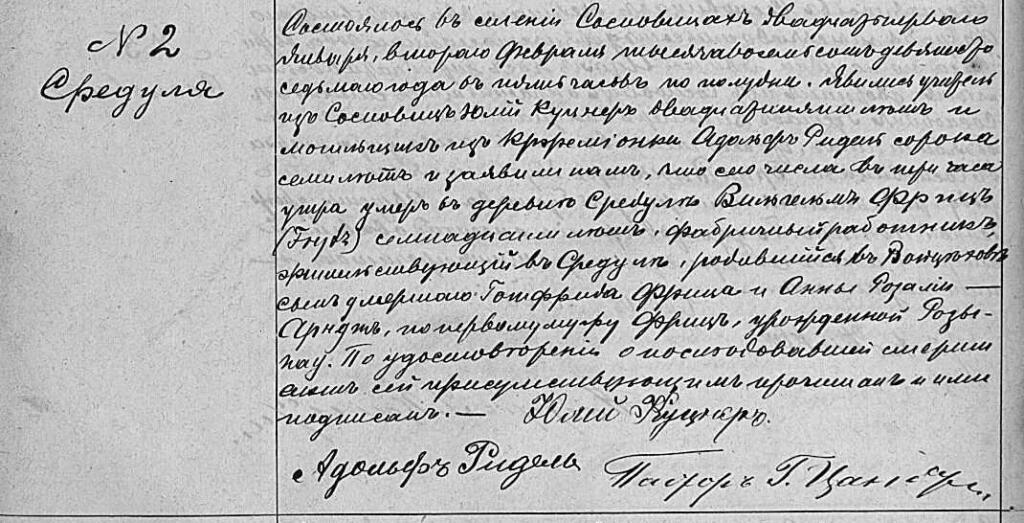 № 2
Средуля
Состоялось въ селеніи Сосновицахъ двадцать перваго
Января, втораго Февраля тысяча восемьсотъ девяносто
седьмаго года въ пять часовъ по полудни. Явились учитель
изъ Сосновицъ Юлій Куцнеръ двадцати пяти лѣтъ и
могильщикъ изъ Адольфъ Ридель сорока
семи лѣтъ и заявили намъ, что сего числа въ три часа
утра умеръ въ деревнѣ Средулѣ Вильгельмъ Фрицъ
семнадцати лѣтъ, фабричный работникъ,
жительствующій въ Средулѣ, родившійся въ
сынъ умершаго Готфрида Фрица и Анны Розаліи —
Арндтъ, по первому мужу Фрицъ, урожденной Розы-
нау. По удостовѣреніи о послѣдовавшей смерти
актъ сей присутствующимъ прочитанъ и ими
подписанъ. — Юлій Куцнеръ.
Адольфъ Ридель Пасторъ Г.